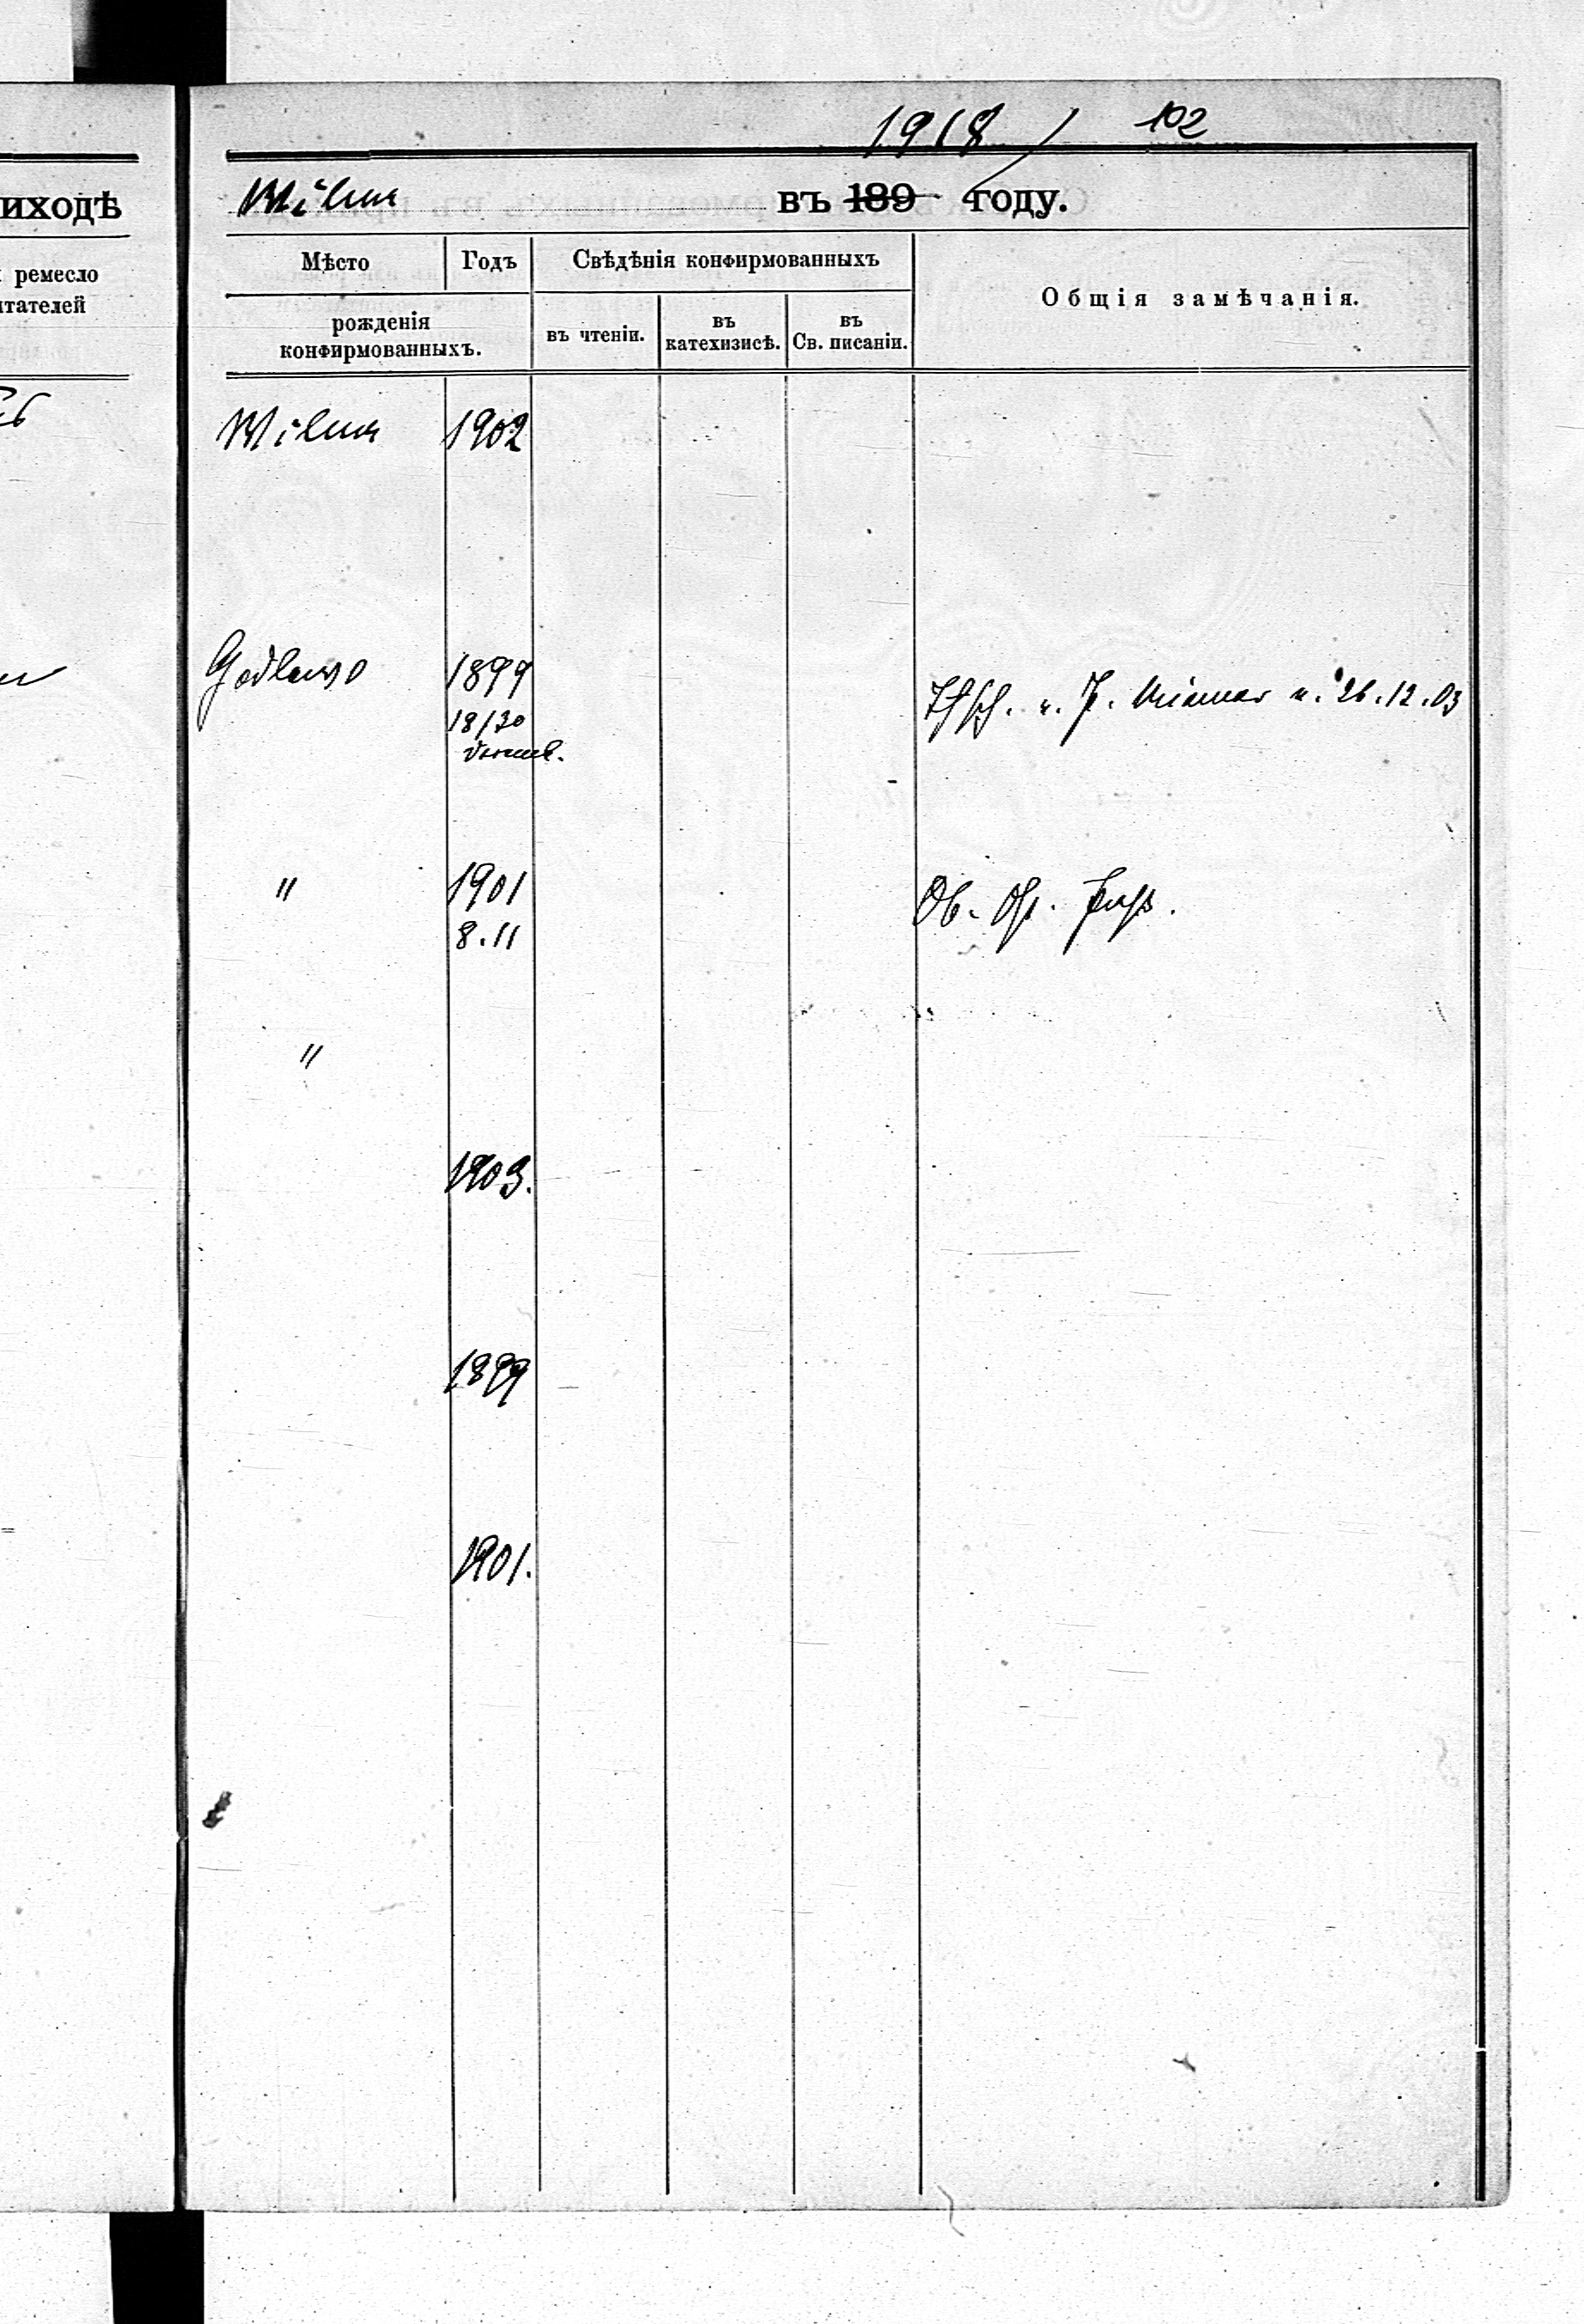 1918 / 102
иходѣ
Wilna въ 189 году.
ремесло
Мѣсто Годъ Свѣдѣнія конфирмованныхъ
Общія замѣчанія.
рожденія
конфирмованныхъ.
въ чтеніи.
въ
катехизисѣ.
въ
Св. писаніи.
Wilna 1902
Godlewo 1899
18/30
26.12.03
" 1901
8.11
"
1903.
1899
1901.